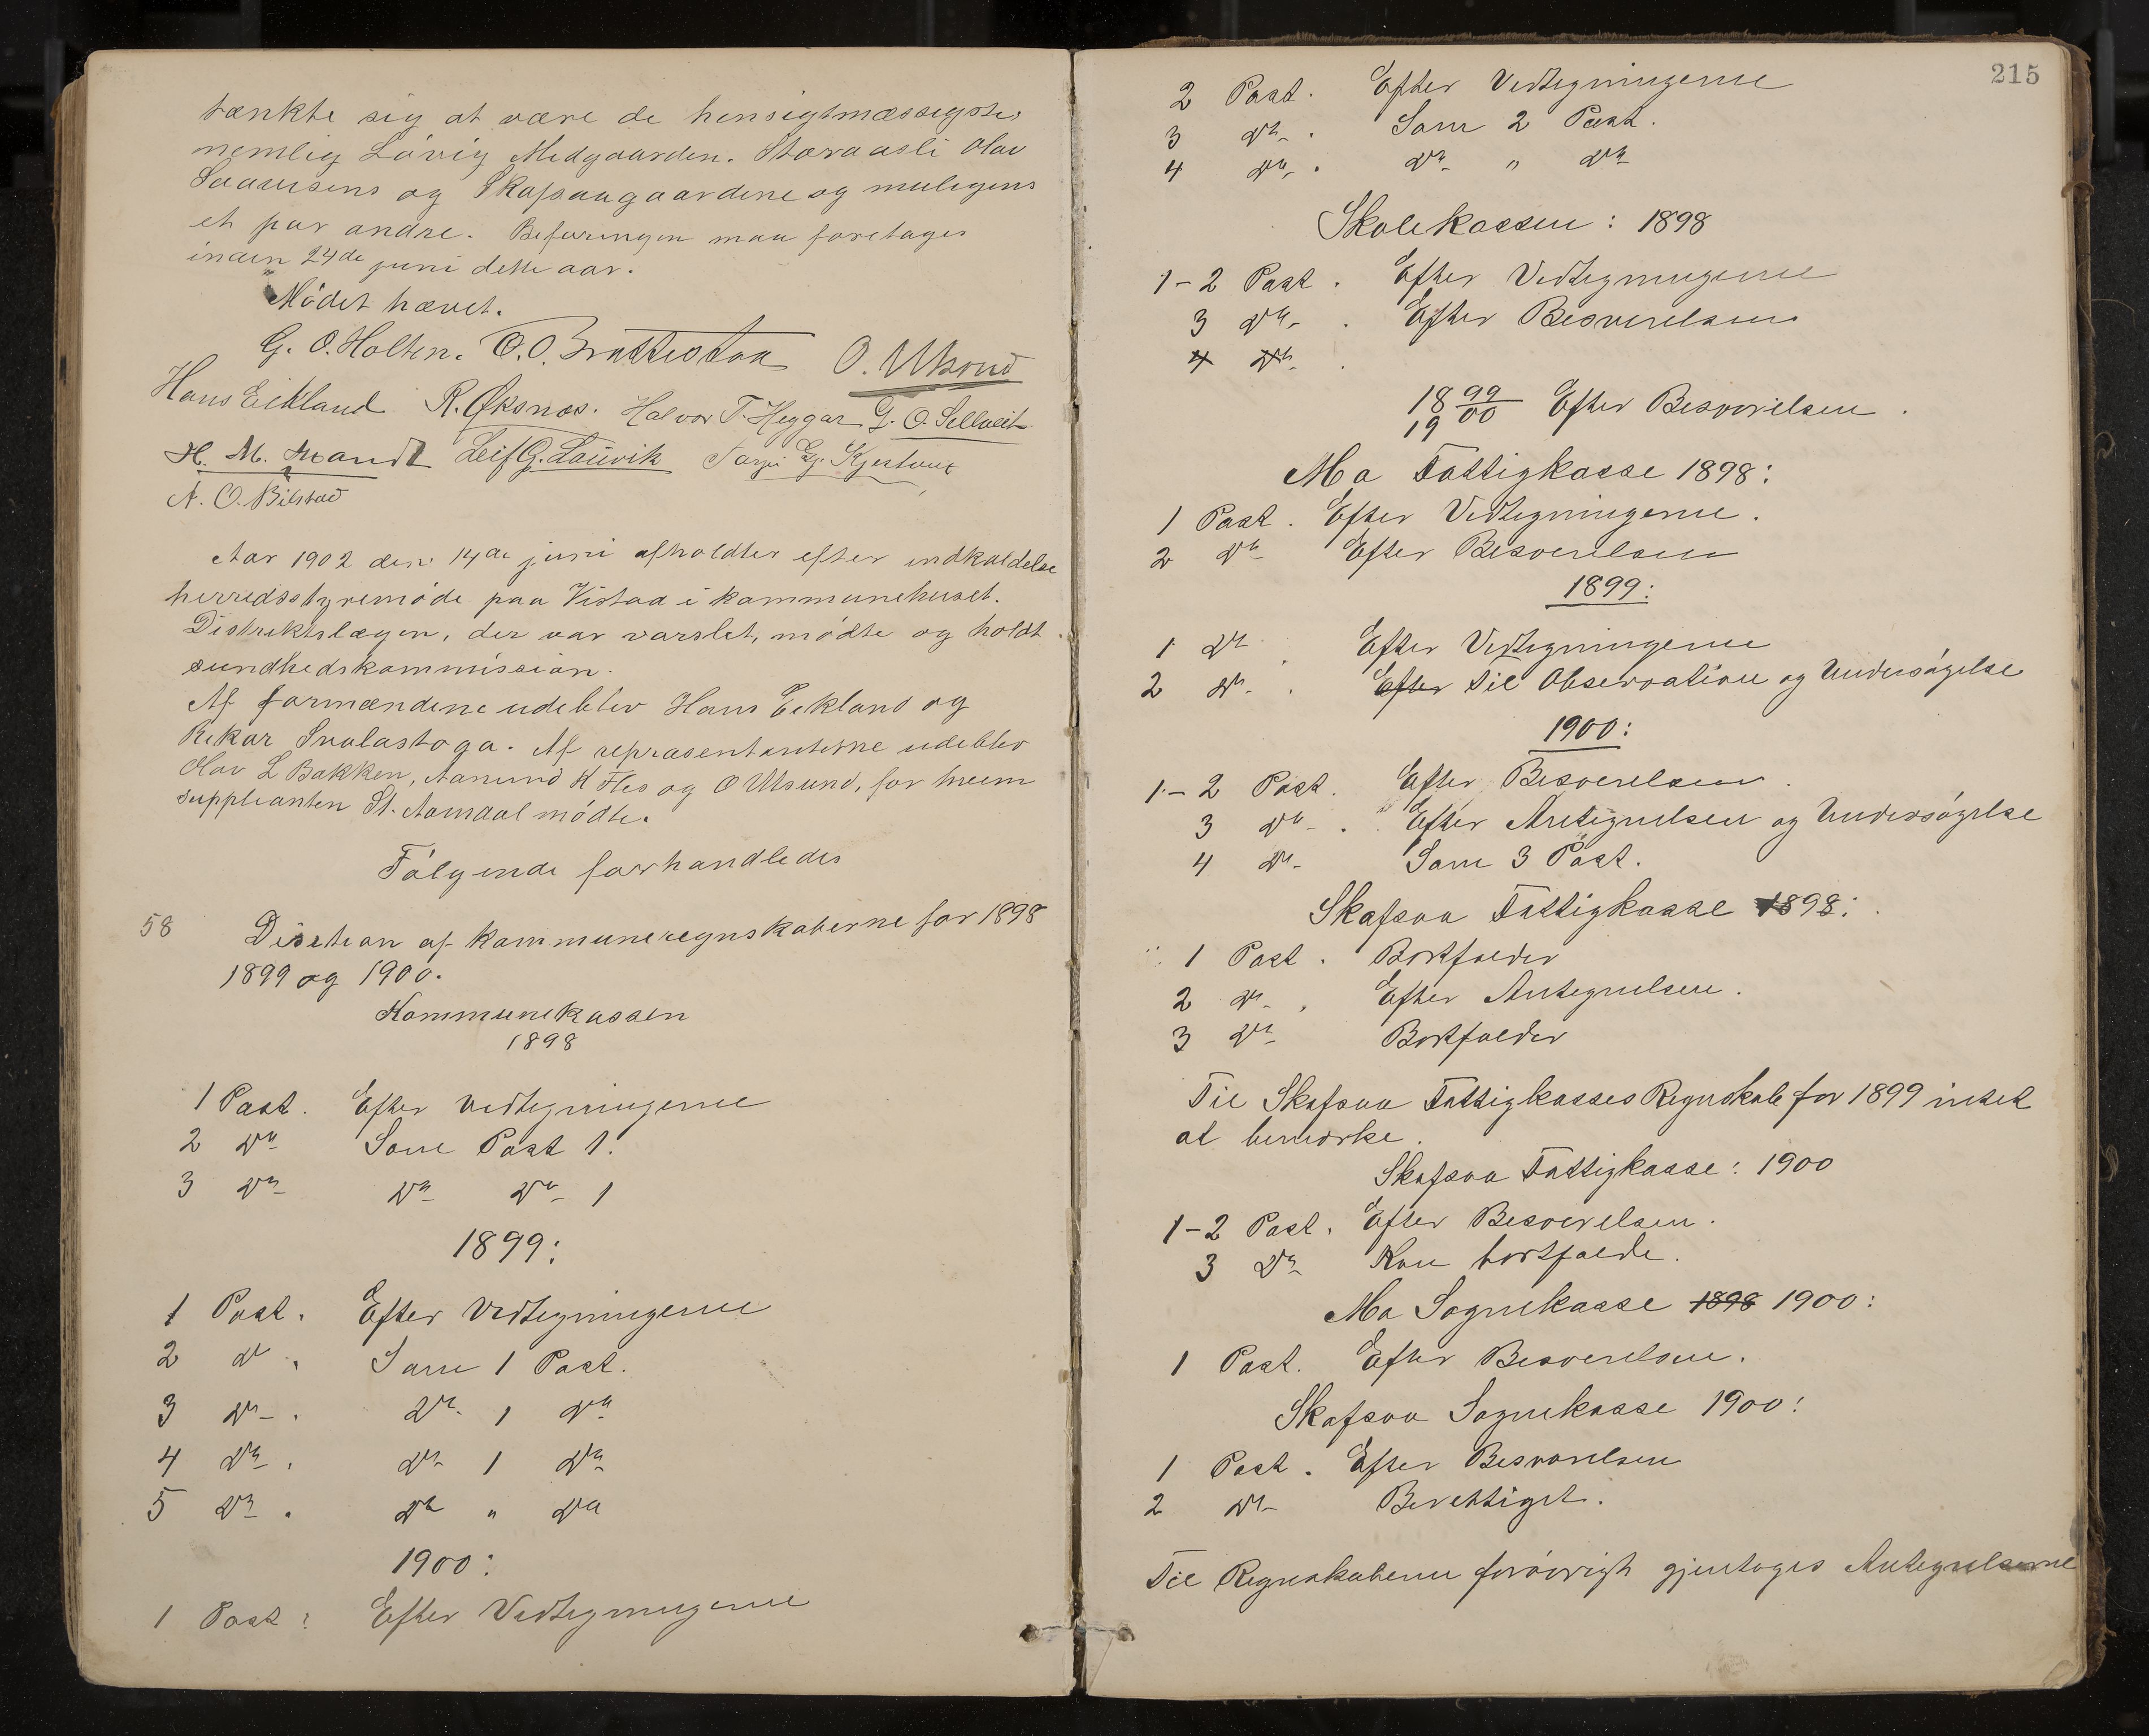 tænkte sig at være de hensigtmæssigste,
nemlig Lövig Medgaarden. Storaasli Olav
Saamsens og Skafsaagaardene og muligens
et par andre. Befaringen maa foretages
inden 24de juni dette aar.
Mödet hævet.
G. O. Holten. O. O. Brattestaa O. Utsund
Hans Eikland R. Øksnæs. Halvor T. Heggar G. O. Selleeit
H. M. Mandt Leif G. Lauvik Targei G. Kjestveit
N. O. Bilstad
Aar 1902 den 14de juni afholdtes efter indkaldelse
herredsstyremöde paa Vistad i kommunehuset.
Distriktslægen, der var varslet, mödte og holdt
sundhedskommission.
Af formændene udeblev Hans Eekland og
Rikar Svalastoga. Af repræsentanterne udeblev
Olav L Bakken, Aanund K Fles og O Utsund, for hvem
supplianten St. Aamdal mödte.
Fölgende forhandledes
58 Disition af kommuneregnskaberne for 1898
1899 og 1900.
Kommunekassen
1898
1 Post. Efter Vedtegningerne
2 Do Som Post 1.
3 Do Do Do 1
1899:
1 Post. Efter Vedtegningerne
2 Do. Som 1 Post.
3 Do. Do. 1 Do
4 Do. Do 1 Do
5 Do. Do " Do
1900:
1 Post: Efter Vedtegningerne
215
2 Post. Efter Vedtegningerne
3 Do. Som 2 Post.
4 Do. Do " Do
Skolekassen: 1898
1-2 Post. Efter Vedtegningerne
3 Do. Efter Besvarelsen
4 Do.
1899/1900 Efter Besvarelsen.
Mo Fattigkasse 1898:
1 Post. Efter Vedtegningerne.
2 Do Efter Besvarelsen
1899:
1 Do. Efter Vedtegningerne
2 Do. Efter Til Observation og Undersögelse
1900:
1-2 Post. Efter Besvarelsen.
3 Do. Efter Antegnelsen og Undersögelse
4 Do Som 3 Post.
Skafsaa Fattigkasse 1898:
1 Post. Bortfalder
2 Do. Efter Antegnelsen.
3 Do Bortfalder
Til Skafsaa Fattigkasses Regnskab for 1899 intet
at bemærke.
Skafsaa Fattigkasse: 1900
1-2 Post. Efter Besvarelsen.
3 Do Kan bortfalde.
Mo Sognekasse 1898 1900:
1 Post. Efter Besvarelsen.
Skafsaa Sognekasse 1900:
1 Post. Efter Besvarelsen
2 Do Berettiget.
Til Regnskaberne forövrigt gjentages Antegnelserne